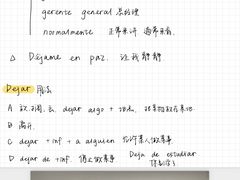 gerente general 总经理
normalmente 正常来讲 通常来看.
△ Déjame en paz. 让我静静
Dejar 用法
A dejar algo + 地点,
B 离开.
C dejar + inf + a alguien 允许某人做某事
D dejar de + inf. 停止做某事 Deja de estudiar.